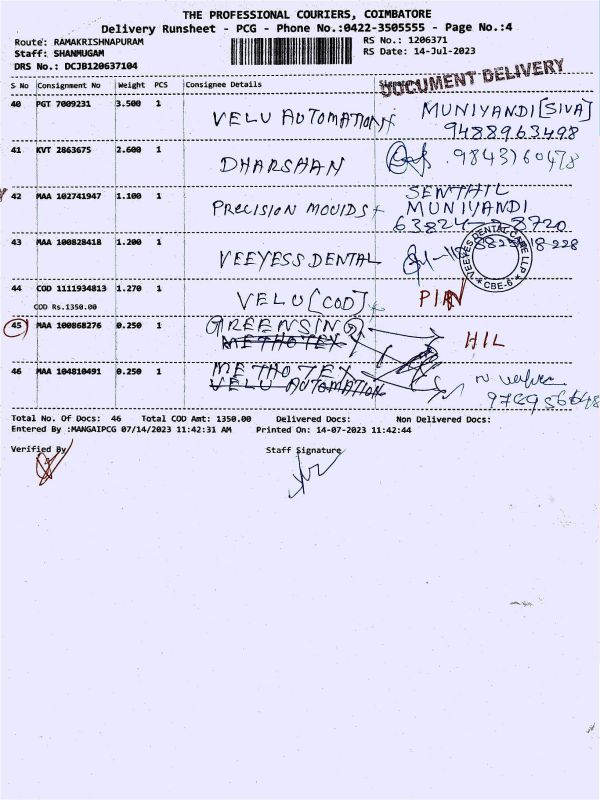 THE PROFESSIONAL COURIERS, COIMBATORE
Delivery Runsheet - PCG - Phone No.:0422-3505555 - Page No.:4
Route: RAMAKRISHNAPURAM RS No.: 1206371
Staff: SHANMUGAM RS Date: 14-Jul-2023
DRS No.: DCJB120637104
DOCUMENT DELIVERY
S No Consignment No Weight PCS Consignee Details Signature
40 PGT 7009231 3.500 1 VELU AUTOMATION MUNIYANDI [SIVA]
9488963498
41 KVT 2863675 2.600 1 DHARSHAN 9843160478
42 MAA 102741947 1.100 1 PRECISION MOUIDS SENTHIL
MUNIYANDI
43 MAA 100828418 1.200 1 VEEYESS DENTAL
VEEYES DENTAL CARE LLP * CBE-6 *
44 COD 1111934813 1.270 1 VELU [COD]
COD Rs.1350.00
45 MAA 100868276 0.250 1 GREENSING HIL
METHOTEX
46 MAA 104810491 0.250 1 METHOTEX
VELU AUTOMATION
Total No. Of Docs: 46 Total COD Amt: 1350.00 Delivered Docs: Non Delivered Docs:
Entered By :MANGAIPCG 07/14/2023 11:42:31 AM Printed On: 14-07-2023 11:42:44
Verified By Staff Signature